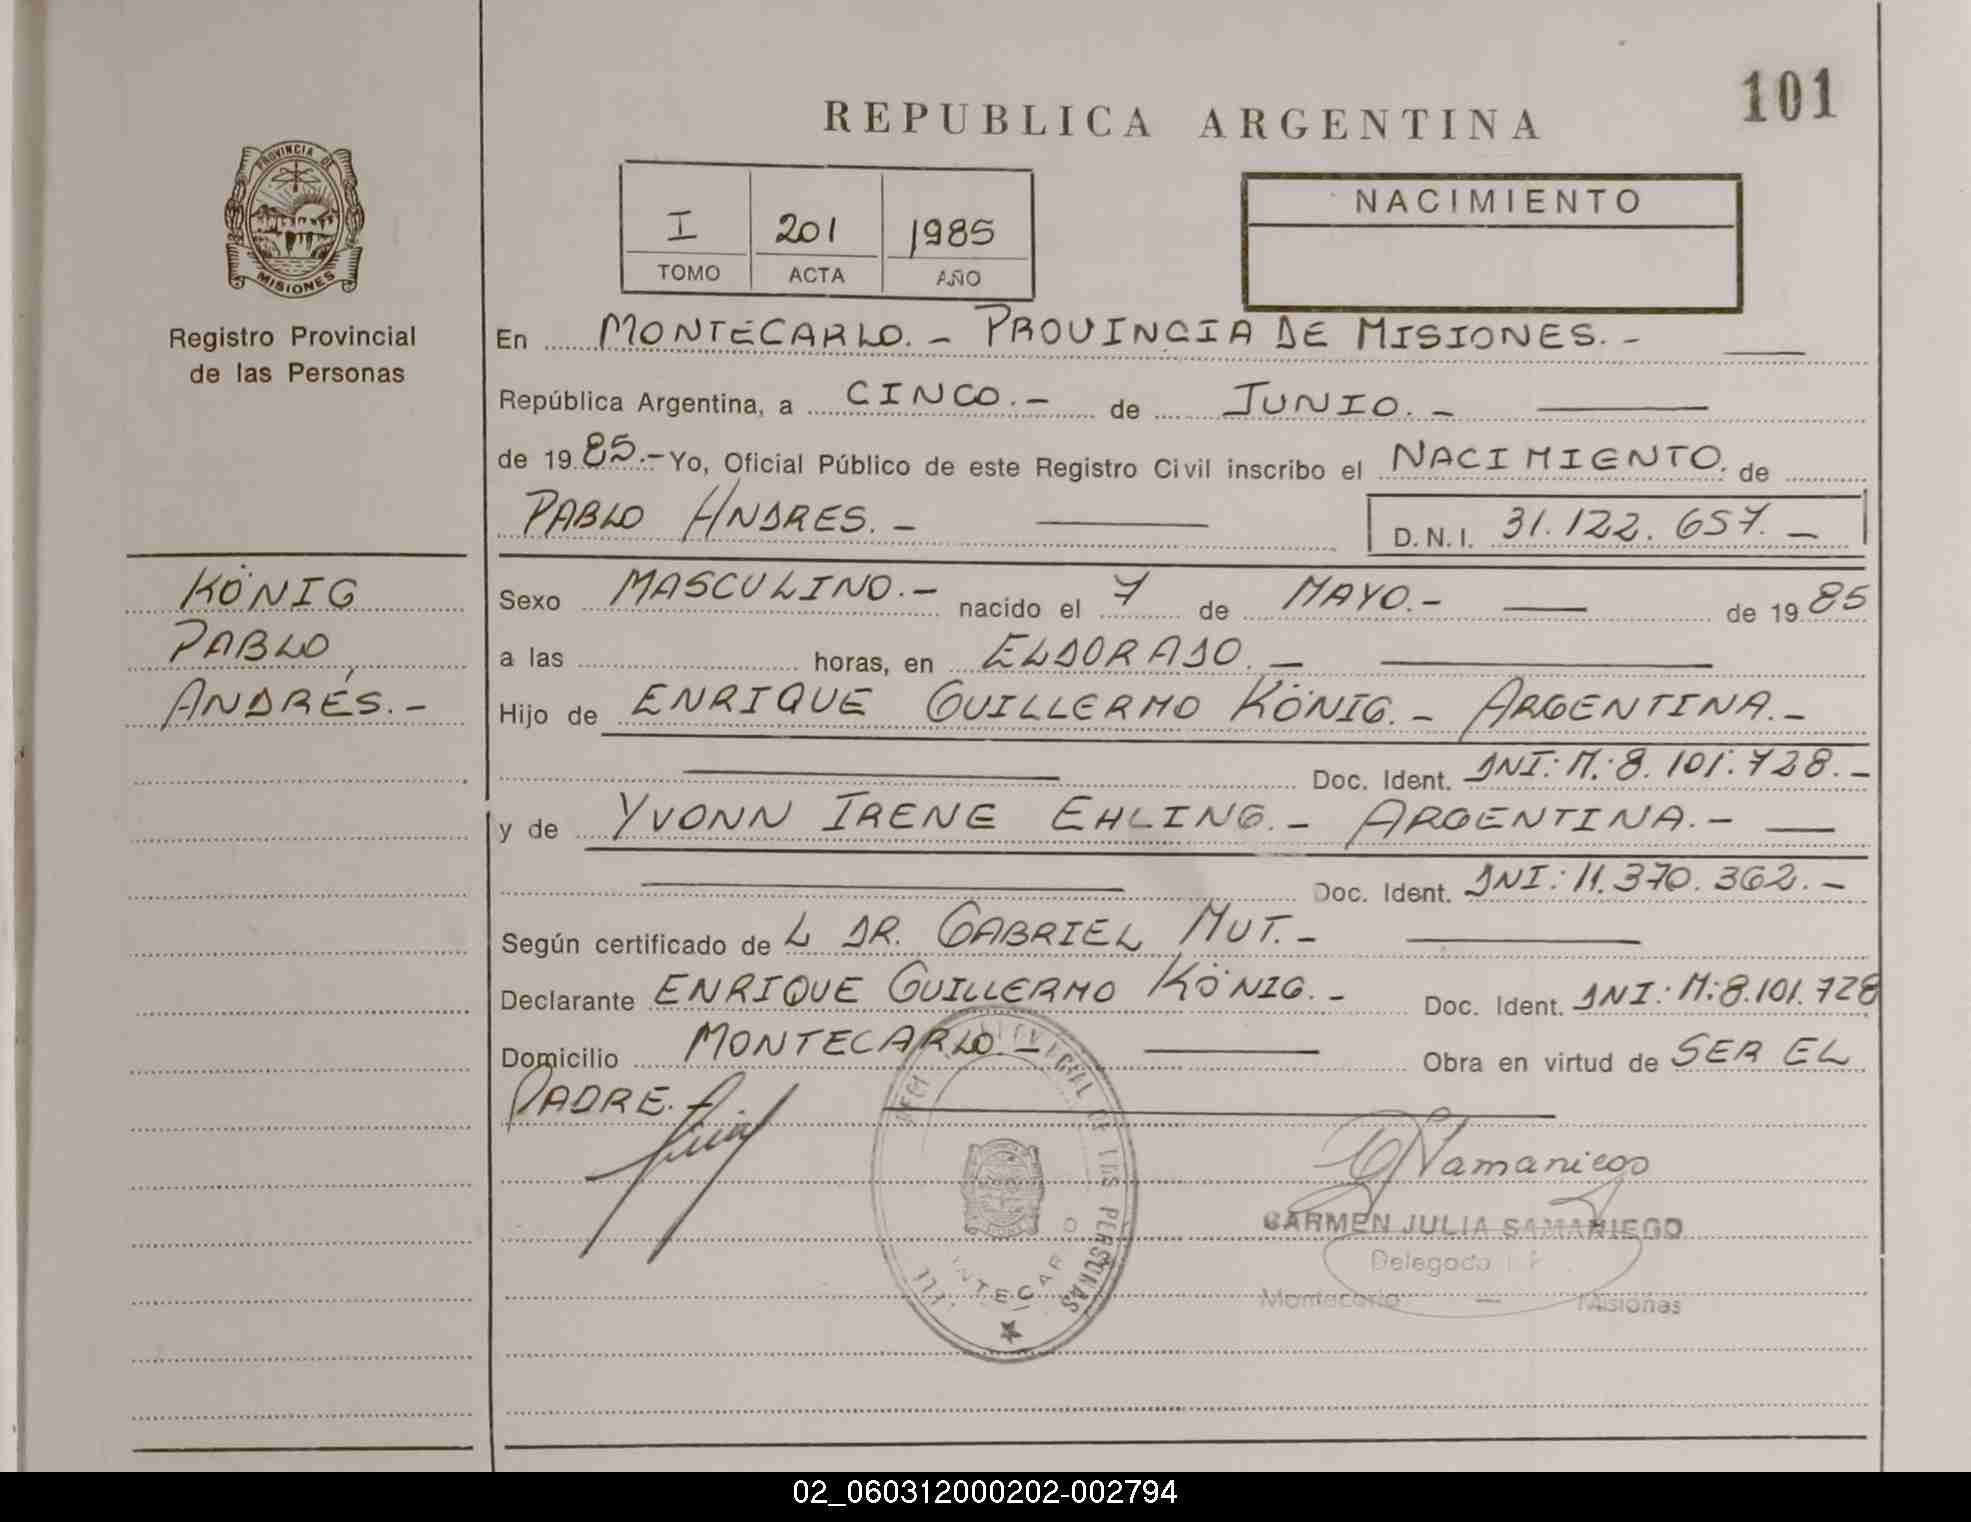 101
REPUBLICA ARGENTINA
PROVINCIA DE
MISIONES
Registro Provincial
de las Personas
I 201 1985
TOMO ACTA AÑO
NACIMIENTO
En MONTECARLO.- PROVINCIA DE MISIONES.-
República Argentina, a CINCO.- de JUNIO.-
de 1985.- Yo, Oficial Público de este Registro Civil inscribo el NACIMIENTO. de
PABLO ANDRES.- D.N.I. 31.122.657.-
KÖNIG
PABLO
ANDRÉS.-
Sexo MASCULINO.- nacido el 7 de MAYO.- de 1985
a las horas, en ELDORADO.-
Hijo de ENRIQUE GUILLERMO KÖNIG.- ARGENTINA.-
Doc. Ident. DNI: M.: 8.101.728.-
y de YVONN IRENE EHLING.- ARGENTINA.-
Doc. Ident. DNI: 11.370.362.-
Según certificado de L DR. GABRIEL MUT.-
Declarante ENRIQUE GUILLERMO KÖNIG.- Doc. Ident. DNI: M: 8.101.728
Domicilio MONTECARLO.- Obra en virtud de SER EL
PADRE.-
DE LAS PERSONAS
Samaniego
CARMEN JULIA SAMANIEGO
Delegada
Montecarlo - Misiones
02_060312000202-002794